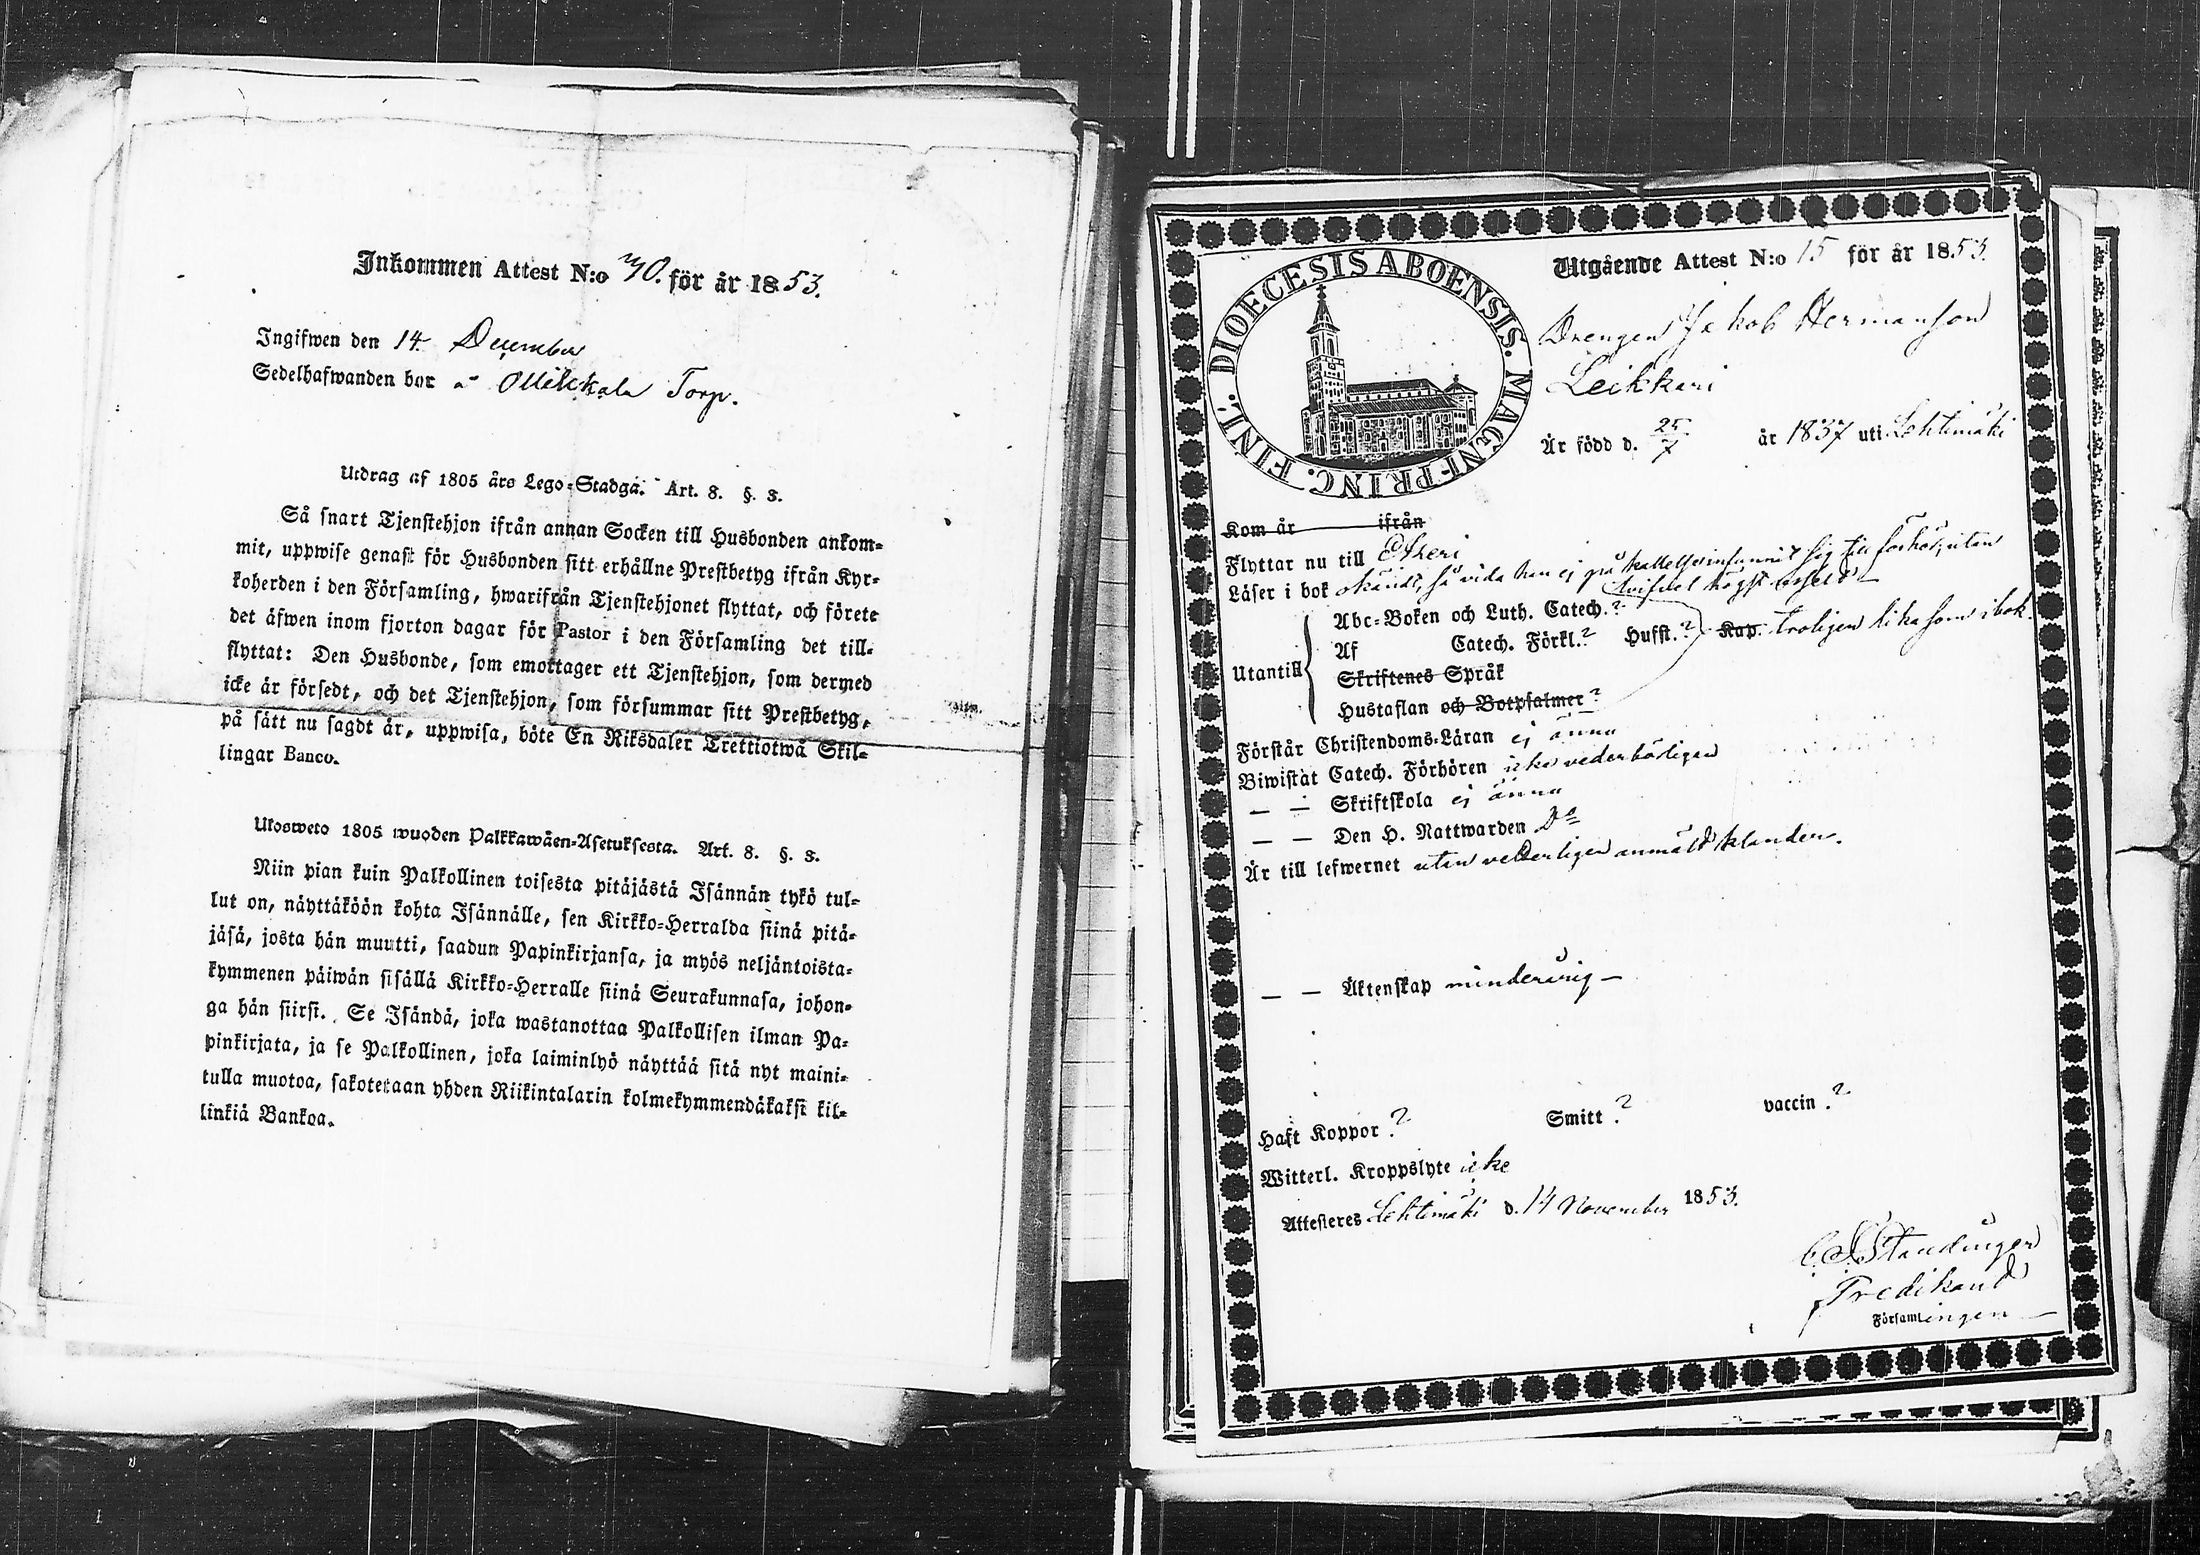 Inkommen Attest N:o 40. för år 1853.
Ingifwen den 14 December
Sedelhafwanden bor å Ollikkala Torp.
Utdrag af 1805 års Lego-Stadga. Art. 8. §. 3.
Så snart Tjenstehjon ifrån annan Socken till Husbonden ankom-
mit, uppwise genast för Husbonden sitt erhållne Prestbetyg ifrån Kyr-
koherden i den Församling, hwarifrån Tjenstehjonet flyttat, och förete
det äfwen inom fjorton dagar för Pastor i den Församling det till-
flyttat: Den Husbonde, som emottager ett Tjenstehjon, som dermed
icke är försedt, och det Tjenstehjon, som försummar sitt Prestbetyg,
på sätt nu sagdt är, uppwisa, böte En Riksdaler Trettiotwå Skil-
lingar Banco.
Ulosweto 1805 wuoden Palkkawäen-Asetuksesta. Art. 8. §. 3.
Niin pian kuin Palkollinen toisesta pitäjästä Isännän tykö tul-
lut on, näyttäköön kohta Isännälle, sen Kirkko-Herralda siinä pitä-
jäsä, josta hän muutti, saadun Papinkirjansa, ja myös neljäntoista-
kymmenen päiwän sisällä Kirkko-Herralle siinä Seurakunnasa, johon-
ga hän siirsi. Se Isändä, joka wastanottaa Palkollisen ilman Pa-
pinkirjata, ja se Palkollinen, joka laiminlyö näyttää sitä nyt maini-
tulla muotoa, sakotetaan yhden Riikintalarin kolmekymmendäkaksi kil-
linkiä Bankoa.
DIOECESIS ABOENSIS. MAGNI PRINC. FINL.
Utgående Attest N:o 15 för år 1853.
Drengen Jakob Hermanson
Leikkari
Är född d. 25/7 år 1837 uti Lehtimäki
Kom år ifrån
Flyttar nu till Etseri
Läser i bok okändt, så vida han ej på kallelse infunnit sig till förhör, utan
tvifvel högst
Utantill
Abc-Boken och Luth. Catech. ?
Af Catech. Förkl. ? Husst. ? Kap. troligen lika som i bok
Skriftenes Språk
Hustaflan och Botpsalmer ?
Förstår Christendoms-Läran ej ännu
Biwistat Catech. Förhören icke vederbörligen
— — Skriftskola ej ännu
— — Den H. Nattwarden Do
Är till lefwernet utan vederligen anmäldt klander.
— — Äktenskap minderårig —
Haft Koppor ? Smitt ? vaccin ?
Witterl. Kroppslyte icke
Attesteres Lehtimäki d. 14 November 1853.
C. J. Standinger
Predikant
Församlingen